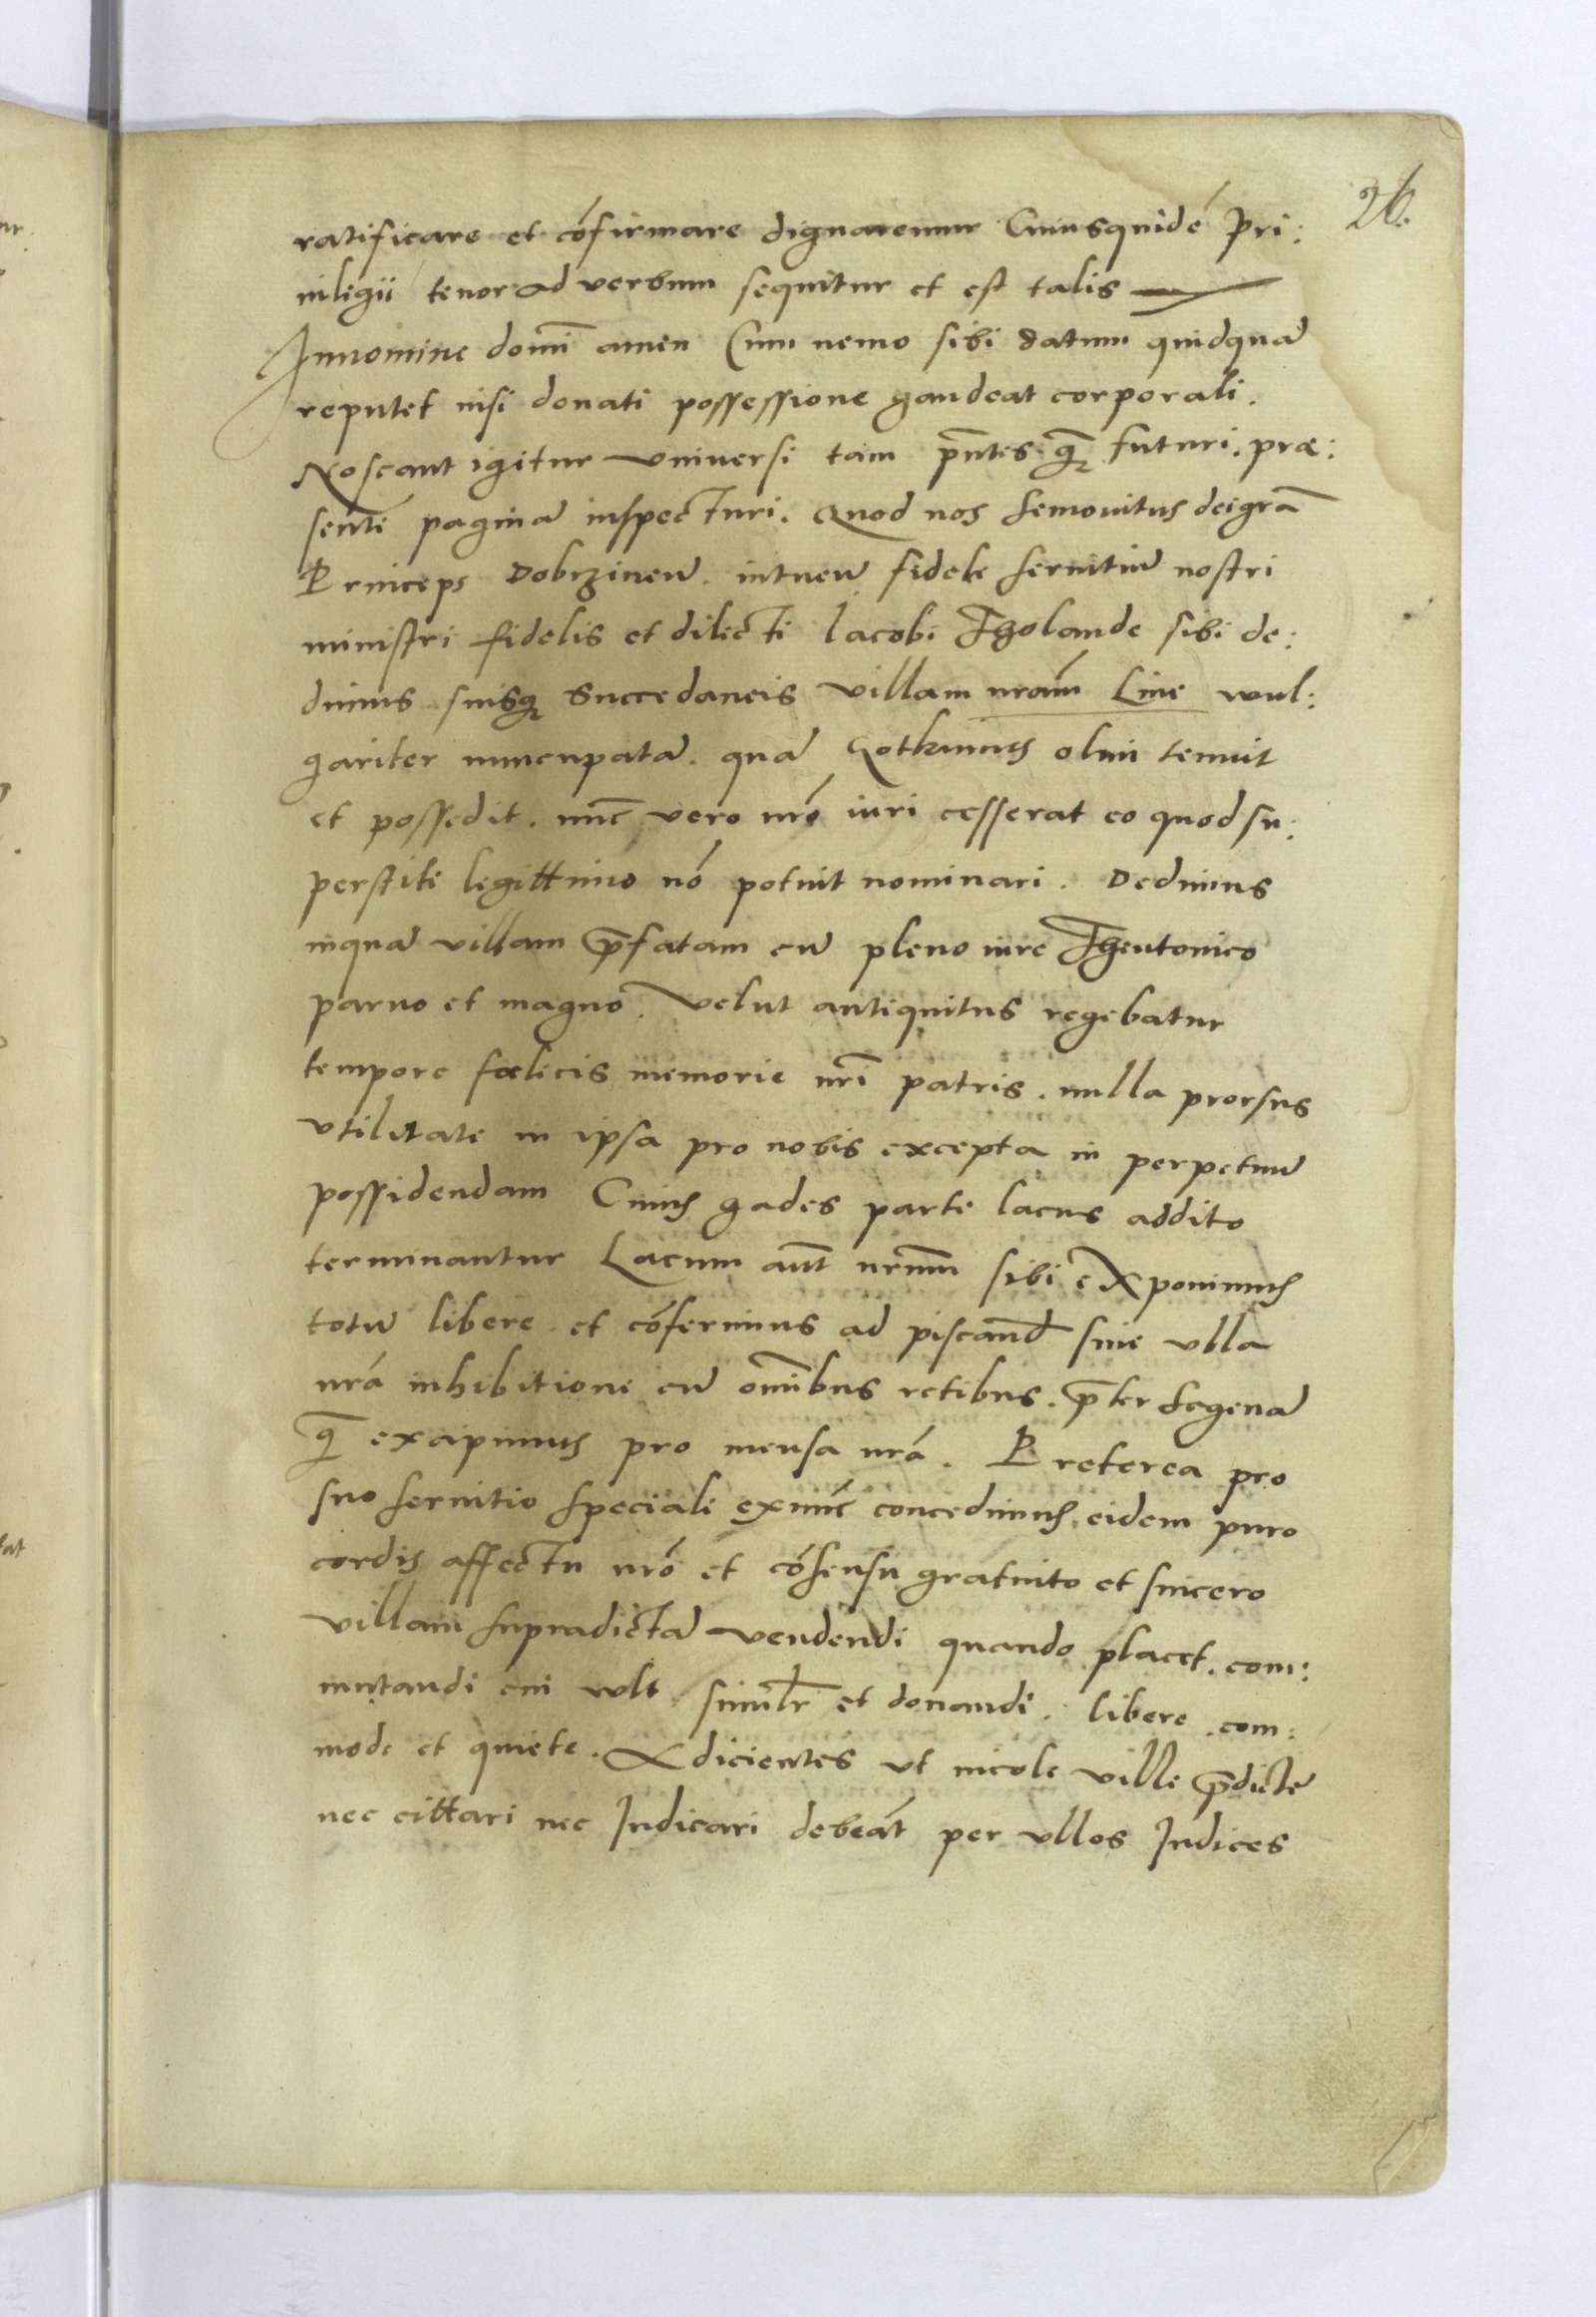 26.
ratificare et cōfirmare dignaremur Cuiusquidē Pri:
uilegii tenor ad verbum sequitur et est talis
Innomine domī amen Cum nemo sibi datum quidquā
reputet nisi donati possessione gaudeat corporali.
Noscant igitur vniuersi tam pn̄tes q̄ futuri. præ:
sentē paginā inspecturi. Quod nos Semouitus dei grā
Princeps Dobrzineñ. intueñ fidele seruitiū nostri
ministri fidelis et dilecti Jacobi Tholande sibi de:
dimus suisq; Succedaneis villam nrām Line wul:
gariter nuncupatā. quā Gotkinus olim tenuit
et possedit. nūc vero nrō iuri cesserat eo quod su:
perstite legittimo nō potuit nominari. Dedimus
inquā villam p̄fatam cū pleno iure Theutonico
paruo et magno. Velut antiquitus regebatur
tempore fœlicis memorie nrī patris. nulla prorsus
vtilitate in ipsa pro nobis excepta in perpetuū
possidendam Cuius gades parte lacus addito
terminantur Lacum aūt nrūm sibi exponimus
totū libere et cōferimus ad piscand̄ sine vlla
nrā inhibitione cū omībus retibus. p̄ter sagenā
q̄ excipimus pro mensa nrā. Preterea pro
suo seruitio speciali exnūc concedimus eidem puro
cordis affectu nrō et cōsensu gratuito et sincero
villam supradictā vendendi quando placet. com:
mutandi cui vult simil̄r et donandi. libere. com:
mode et quiete. Adicientes vt incole ville p̄dicte
nec cittari nec Iudicari debeāt per vllos Iudices